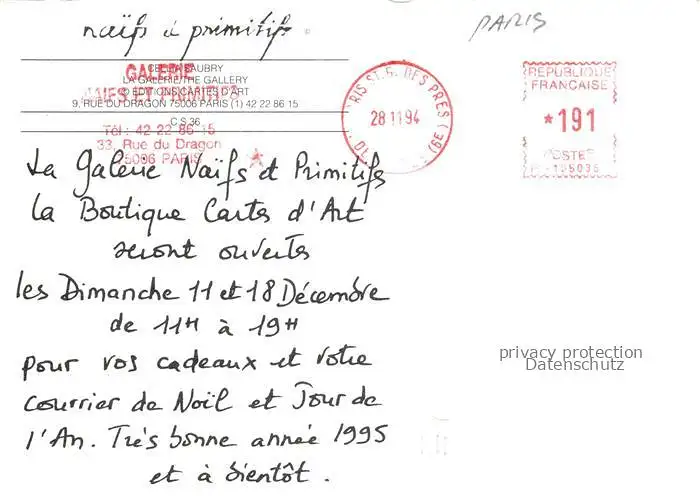 naïfs et primitifs
PARIS
LA GALERIE/THE GALLERY
© EDITIONS CARTES D'ART
9, RUE DU DRAGON 75006 PARIS (1) 42 22 86 15
C.S 36
GALERIE
Tél : 42 22 86 15
33, Rue du Dragon
75006 PARIS
28 11 94
REPUBLIQUE
FRANCAISE
*191
POSTES
La Galerie Naïfs et Primitifs
la Boutique Cartes d'Art
seront ouvertes
les Dimanche 11 et 18 Décembre
de 11H à 19H
pour vos cadeaux et votre
courrier de Noël et Jour de
l'An. Très bonne année 1995
et à bientôt.
privacy protection
Datenschutz